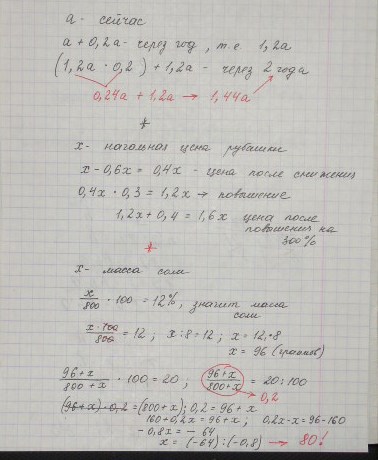 а - сейчас
а + 0,2а - через год, т.е. 1,2а
(1,2а · 0,2) + 1,2а - через 2 года
0,24а + 1,2а → 1,44а
*
х - начальная цена рубашки
х - 0,6х = 0,4х - цена после снижения
0,4х · 0,3 = 1,2х → повышение
1,2х + 0,4 = 1,6х цена после
повышения на
300%
*
х - масса соли
х/800 · 100 = 12%, значит масса
соли
х·100/800 = 12; х : 8 = 12; х = 12·8
х = 96 (граммов)
96+х/800+х · 100 = 20; 96+х/800+х = 20:100
0,2
(96+х)·0,2 = (800+х); 0,2 = 96+х
160 + 0,2х = 96 + х; 0,2х - х = 96 - 160
-0,8х = -64
х = (-64) : (-0,8) → 80!